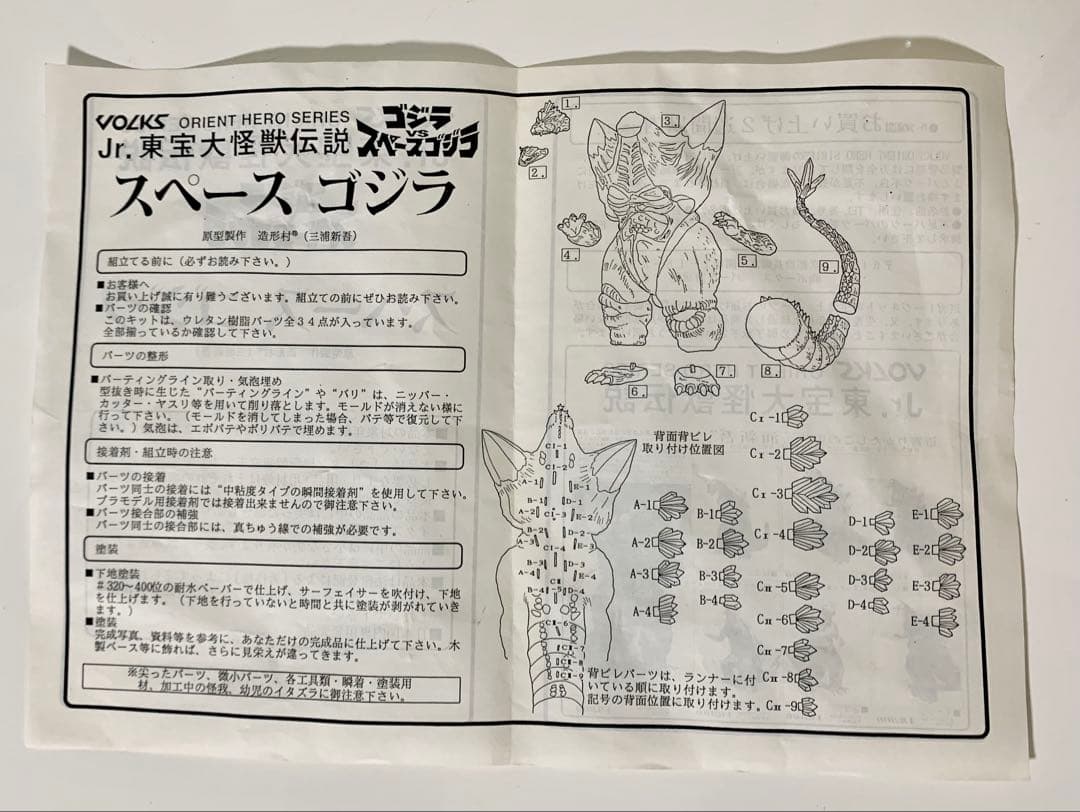 VOLKS ORIENT HERO SERIES
Jr.東宝大怪獣伝説
ゴジラ
VS
スペースゴジラ
スペース ゴジラ
原型製作 造形村 (三浦新吾)
組立てる前に(必ずお読み下さい。)
■お客様へ
お買い上げ誠に有り難うございます。組立ての前にぜひお読み下さい。
■パーツの確認
このキットは、ウレタン樹脂パーツ全34点が入っています。
全部揃っているか確認して下さい。
パーツの整形
■パーティングライン取り・気泡埋め
型抜き時に生じた“パーティングライン”や“バリ”は、ニッパー・
カッター・ヤスリ等を用いて削り落とします。モールドが消えない様に
行って下さい。(モールドを消してしまった場合、パテ等で復元して下
さい。)気泡は、エポパテやポリパテで埋めます。
接着剤・組立時の注意
■パーツの接着
パーツ同士の接着には“中粘度タイプの瞬間接着剤”を使用して下さい。
プラモデル用接着剤では接着出来ませんので御注意下さい。
■パーツ接合部の補強
パーツ同士の接合部には、真ちゅう線での補強が必要です。
塗装
■下地塗装
#320〜400位の耐水ペーパーで仕上げ、サーフェイサーを吹付け、下地
を仕上げます。(下地を行っていないと時間と共に塗装が剥がれていき
ます。)
■塗装
完成写真、資料等を参考に、あなただけの完成品に仕上げて下さい。木
製ベース等に飾れば、さらに見栄えが違ってきます。
※尖ったパーツ、微小パーツ、各工具類・瞬着・塗装用
材、加工中の怪我、幼児のイタズラに御注意下さい。
1.
2.
3.
4.
5.
6.
7.
8.
9.
背面背ビレ
取り付け位置図
CI-1
CI-2
A-1
E-1
B-1
D-1
A-2
CI-3
E-2
B-2
D-2
A-3
E-3
CI-4
B-3
D-3
A-4
E-4
CII
B-4
-5
D-4
CII-6
CII-7
CII-8
CII-9
CI-1
CI-2
CI-3
CI-4
CII-5
CII-6
CII-7
CII-8
CII-9
A-1
A-2
A-3
A-4
B-1
B-2
B-3
B-4
D-1
D-2
D-3
D-4
E-1
E-2
E-3
E-4
背ビレパーツは、ランナーに付
いている順に取り付けます。
記号の背面位置に取り付けます。